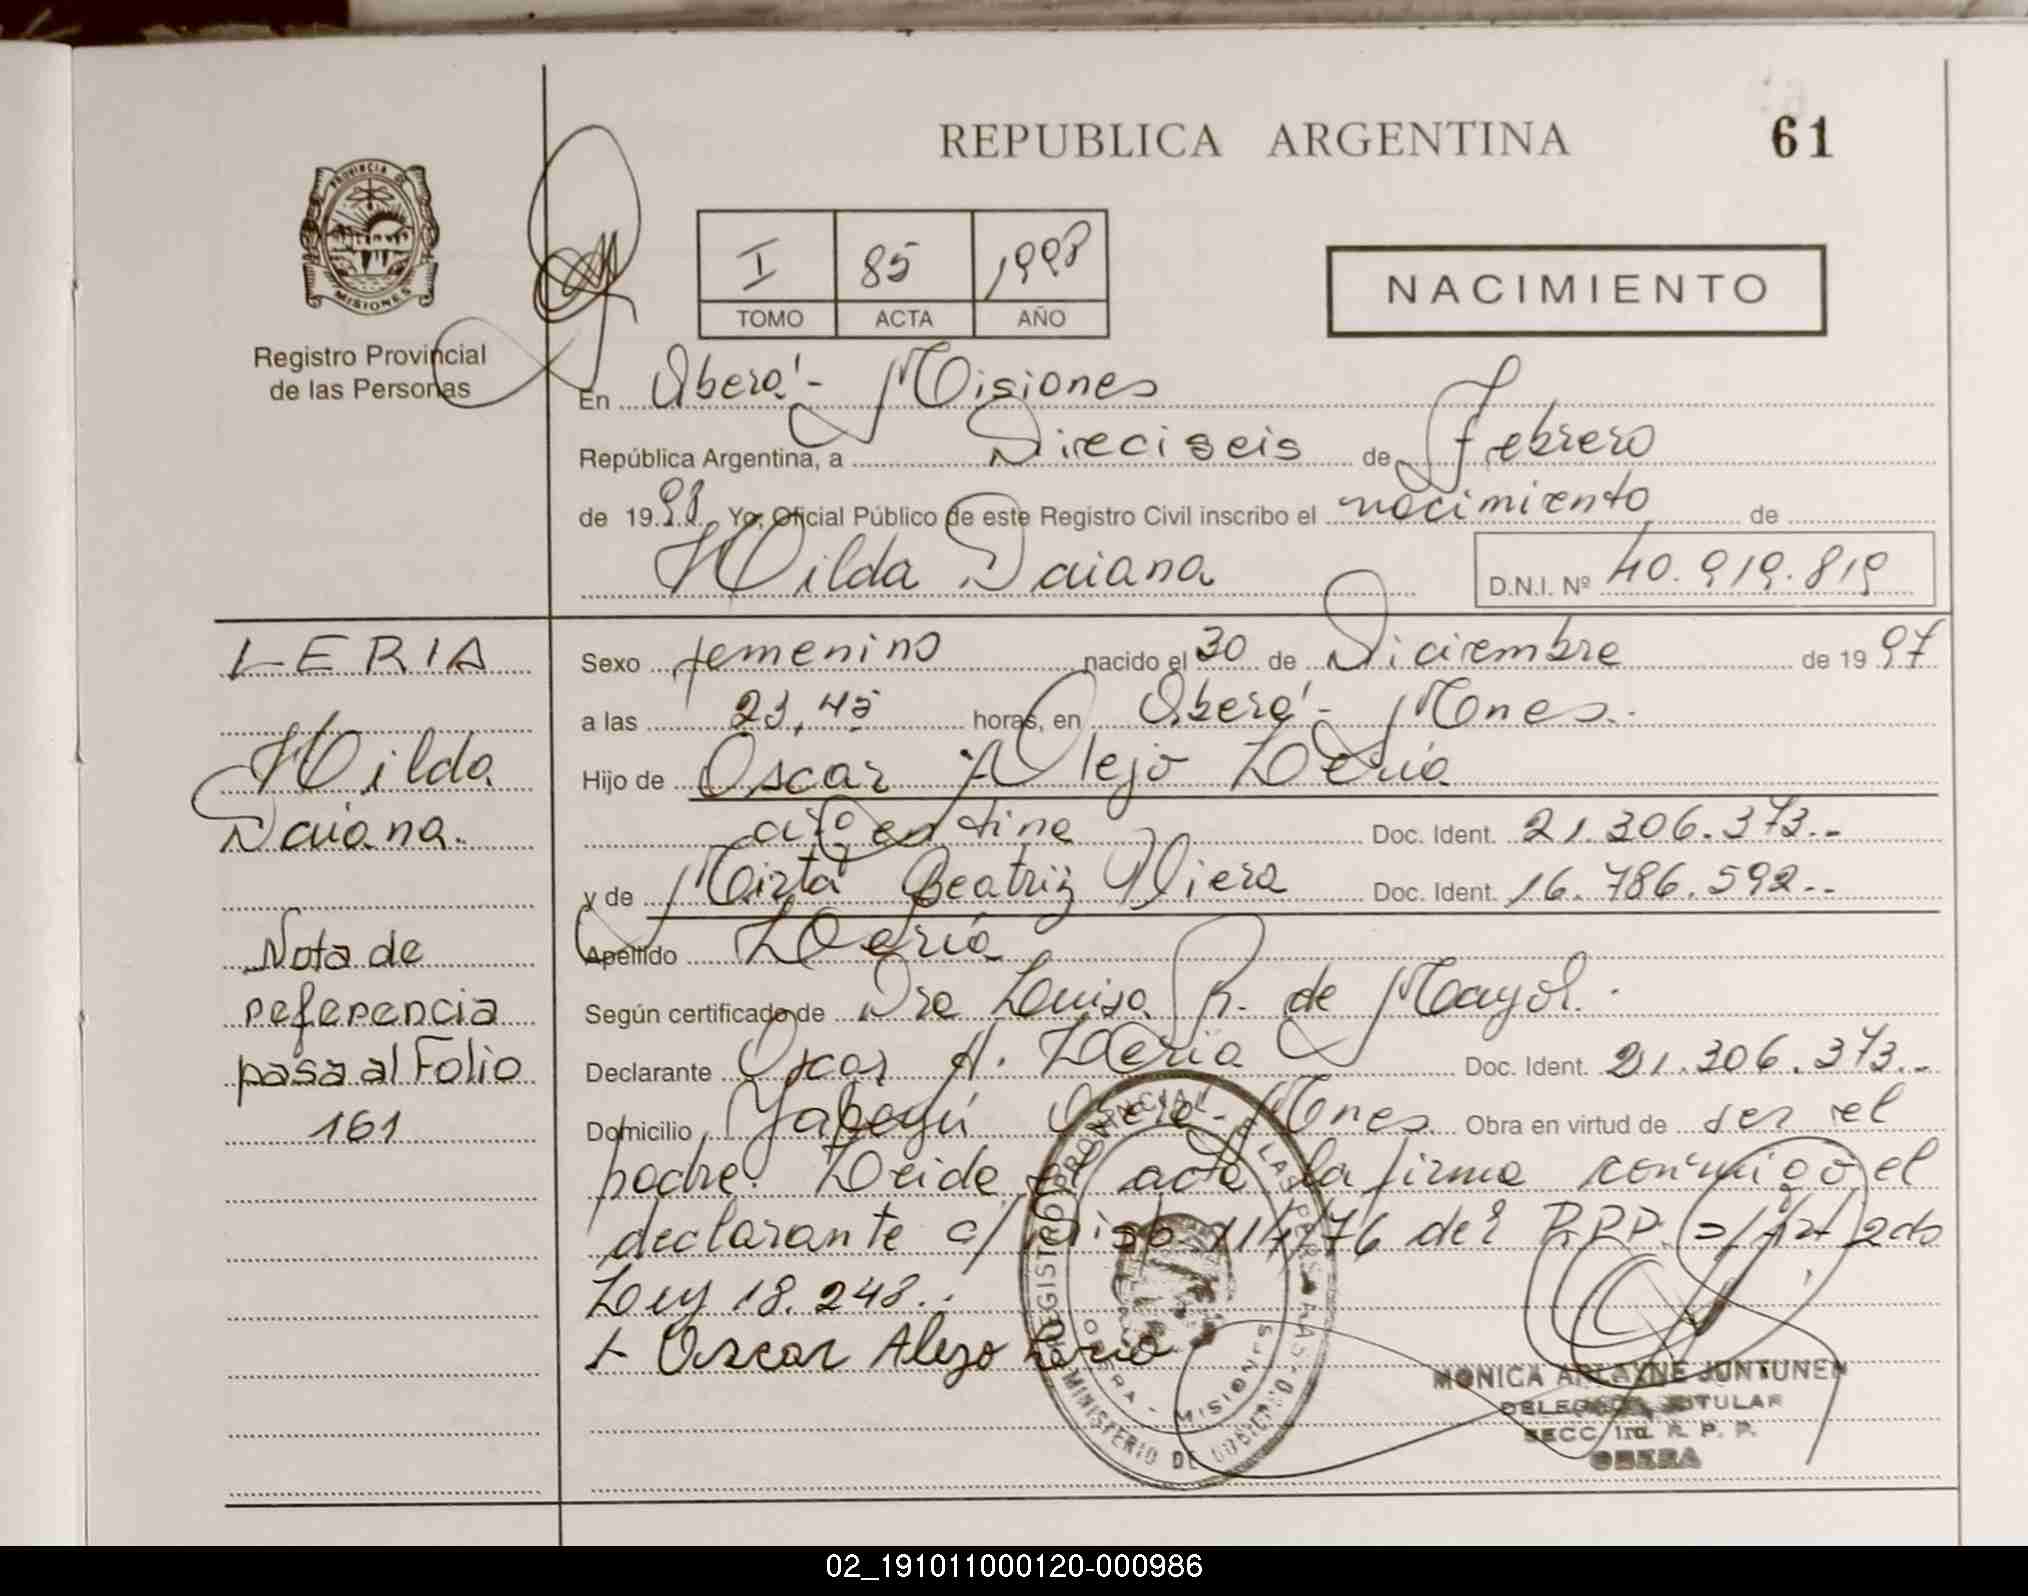 REPUBLICA ARGENTINA
61
PROVINCIA DE
MISIONES
Registro Provincial
de las Personas
I 85 1998
TOMO ACTA AÑO
NACIMIENTO
En Oberá - Misiones
República Argentina, a Dieciseis de Febrero
de 1998 Yo, Oficial Público de este Registro Civil inscribo el nacimiento de
Hilda Daiana D.N.I. Nº 40.919.819
LERIA
Hilda
Daiana.
Nota de
referencia
pasa al Folio
161
Sexo femenino nacido el 30 de Diciembre de 1997
a las 23,45 horas, en Oberá - Mnes.
Hijo de Oscar Alejo Leria
argentina Doc. Ident. 21.306.373.-
y de Mirta Beatriz Viera Doc. Ident. 16.786.592.-
Apellido Leria
Según certificado de Dra Luisa R. de Mayol.
Declarante Oscar A. Leria Doc. Ident. 21.306.373.-
Domicilio Yapeyú Oberá - Mnes Obra en virtud de ser el
padre. Leida el acta la firma conmigo el
declarante c/ Disp. 114/76 del R.P.P. s/Art 2do
Ley 18.248.-
Oscar Alejo Leria
REGISTRO PROVINCIAL DE LAS PERSONAS
OBERA - MISIONES
MINISTERIO DE GOBIERNO
MONICA ARLAYNE JUNTUNEN
DELEGADA TITULAR
SECC. 1ra. R. P. P.
OBERA
02_191011000120-000986